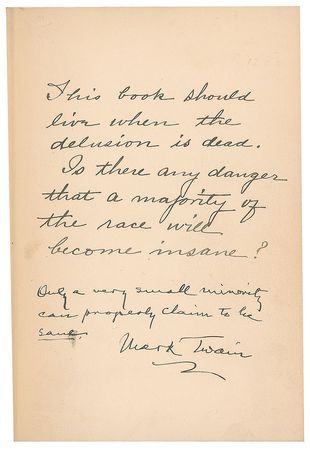 This book should
live when the
delusion is dead.
Is there any danger
that a majority of
the race will
become insane?
Only a very small minority
can properly claim to be
sane.
Mark Twain